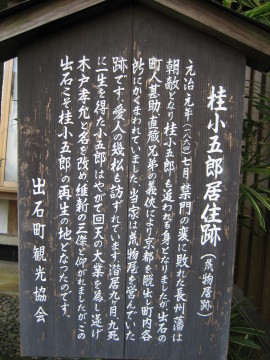 桂小五郎居住跡（荒物屋跡）
元治元年（一八六四）七月、禁門の変に敗れた長州藩は
朝敵となり桂小五郎も追われる身となりましたが出石の
町人甚助、直蔵兄弟の義侠により京都を脱出し町内各
所にかくまわれていました。当家は荒物屋を営んでいた
跡です。愛人の幾松も訪ずれています。潜居九ヶ月、九死
に一生を得た小五郎はやがて回天の大業を為し遂げ
木戸孝允と名を改め維新の三傑と仰がれましたがこの
出石こそ桂小五郎の再生の地となつたのです。
出石町観光協会